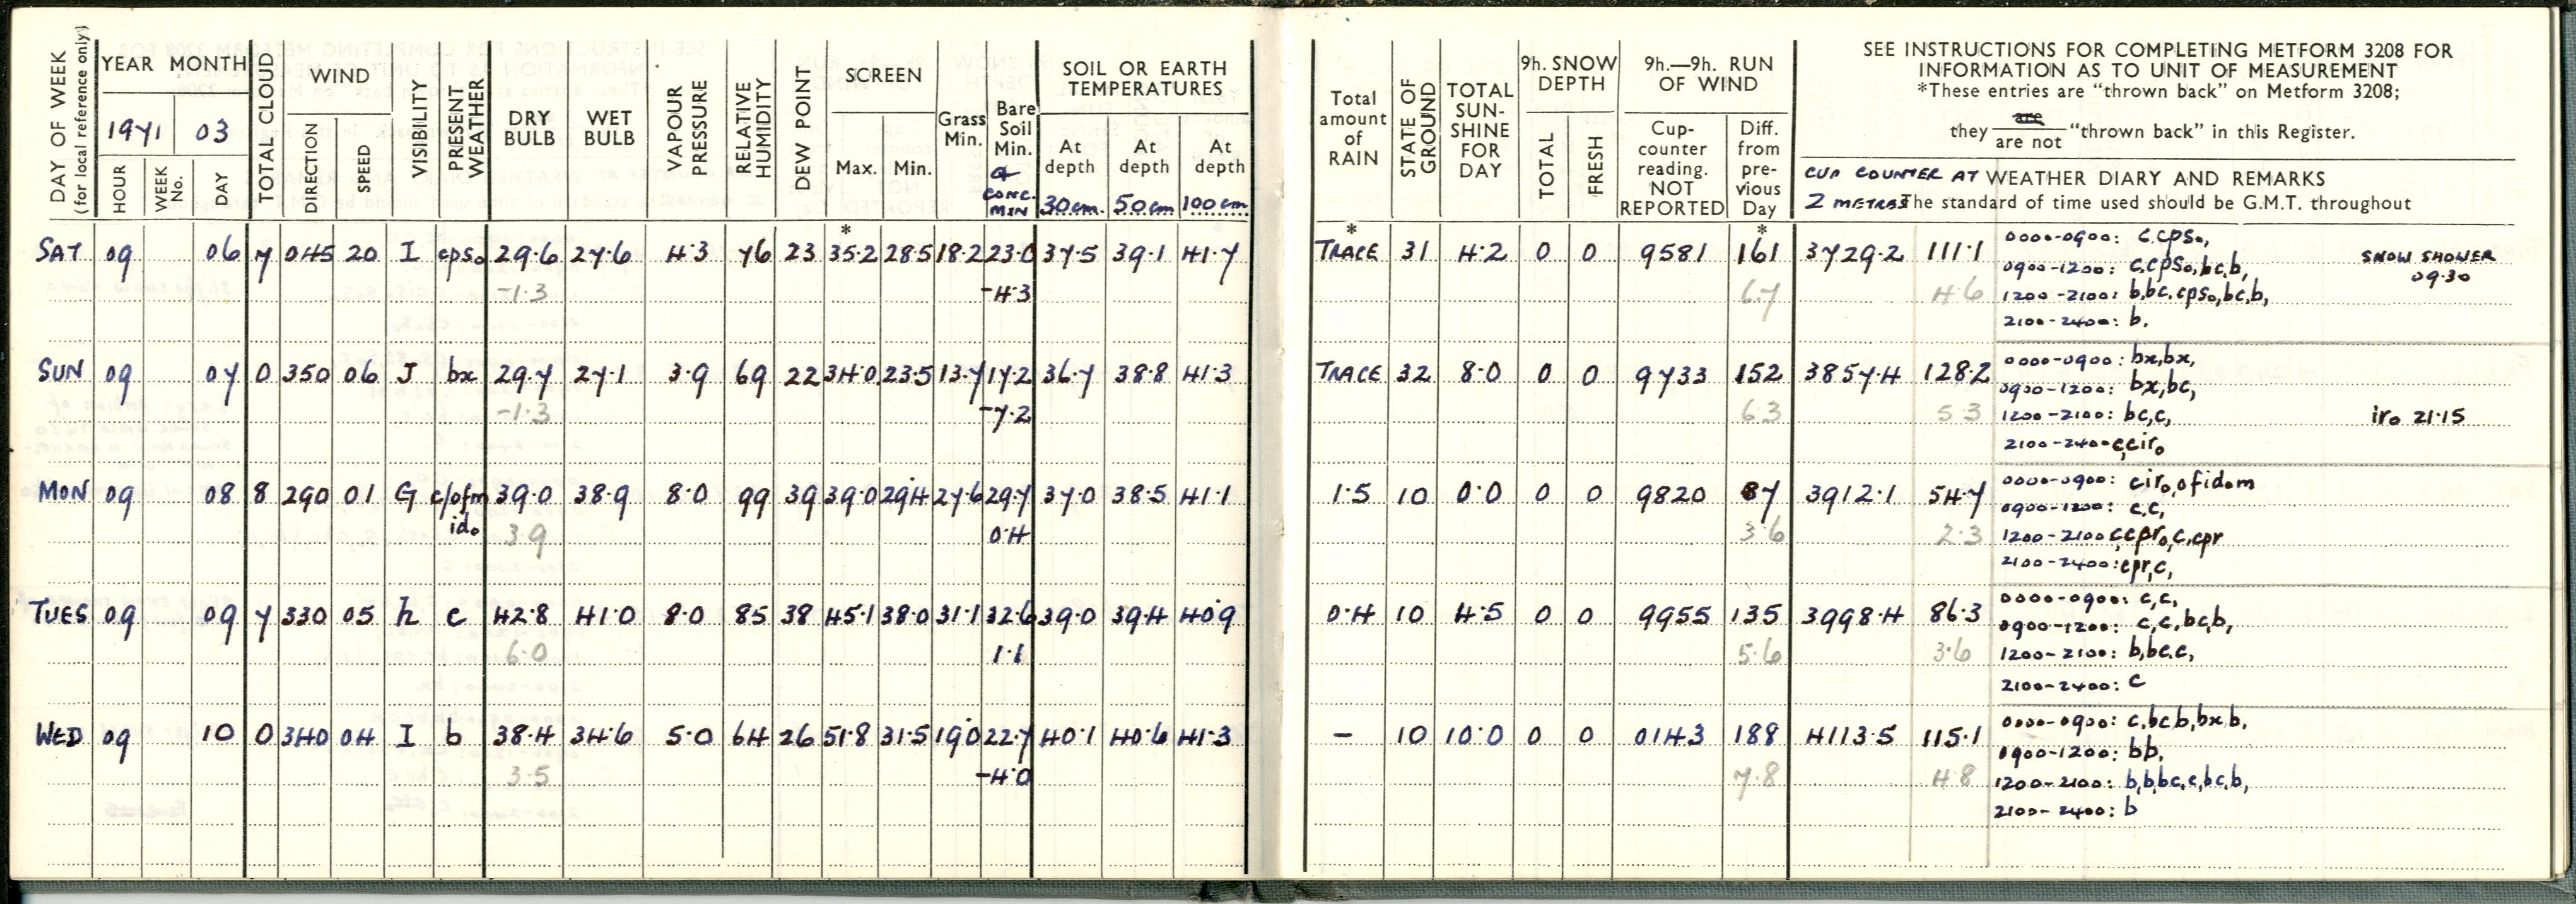 DAY OF WEEK
(for local reference only)
YEAR MONTH
1971 03
HOUR
WEEK No.
DAY
TOTAL CLOUD
WIND
DIRECTION
SPEED
VISIBILITY
PRESENT WEATHER
DRY BULB
WET BULB
VAPOUR PRESSURE
RELATIVE HUMIDITY
DEW POINT
SCREEN
Max. Min.
Grass Min.
Bare Soil Min.
or CONC. MIN
SOIL OR EARTH TEMPERATURES
At depth 30cm.
At depth 50cm
At depth 100cm
Total amount of RAIN
STATE OF GROUND
TOTAL SUN-SHINE FOR DAY
9h. SNOW DEPTH
TOTAL
FRESH
9h.—9h. RUN OF WIND
Cup-counter reading. NOT REPORTED
Diff. from pre-vious Day
SEE INSTRUCTIONS FOR COMPLETING METFORM 3208 FOR
INFORMATION AS TO UNIT OF MEASUREMENT
*These entries are “thrown back” on Metform 3208;
they are / are not “thrown back” in this Register.
CUP COUNTER AT 2 METRES
WEATHER DIARY AND REMARKS
The standard of time used should be G.M.T. throughout
* *
*
SAT 09 06 7 045 20 I cpso 29.6 27.6 4.3 76 23 35.2 28.5 18.2 23.0 37.5 39.1 41.7 TRACE 31 4.2 0 0 9581 161 3729.2 111.1 0000-0900: c,cpso,
0900-1200: c,cpso,bc,b,
SNOW SHOWER
09.30
-1.3 -4.3 6.7 4.6 1200-2100: b,bc,cpso,bc,b,
2100-2400: b.
SUN 09 07 0 350 06 J bx 29.7 27.1 3.9 69 22 34.0 23.5 13.7 17.2 36.7 38.8 41.3 TRACE 32 8.0 0 0 9733 152 3857.4 128.2 0000-0900: bx,bx,
0900-1200: bx,bc,
-1.3 -7.2 6.3 5.3 1200-2100: bc,c, iro 21.15
2100-2400 c,ciro
MON 09 08 8 290 01 G c/ofm 39.0 38.9 8.0 99 39 39.0 29.4 27.6 29.7 37.0 38.5 41.1 1.5 10 0.0 0 0 9820 87 3912.1 54.7 0000-0900: ciro,ofidom
0900-1200: c,c,
ido 3.9 0.4 3.6 2.3 1200-2100 c,cpro,c,cpr
2100-2400: cpr,c,
TUES 09 09 7 330 05 h c 42.8 41.0 8.0 85 38 45.1 38.0 31.1 32.6 39.0 39.4 40.9 0.4 10 4.5 0 0 9955 135 3998.4 86.3 0000-0900: c,c,
0900-1200: c,c,bc,b,
6.0 1.1 5.6 3.6 1200-2100: b,bc,c,
2100-2400: c
WED 09 10 0 340 04 I b 38.4 34.6 5.0 64 26 51.8 31.5 19.0 22.7 40.1 40.6 41.3 – 10 10.0 0 0 0143 188 4113.5 115.1 0000-0900: c,bc,b,bx,b,
0900-1200: bb,
3.5 -4.0 7.8 4.8 1200-2100: b,b,bc,c,bc,b,
2100-2400: b